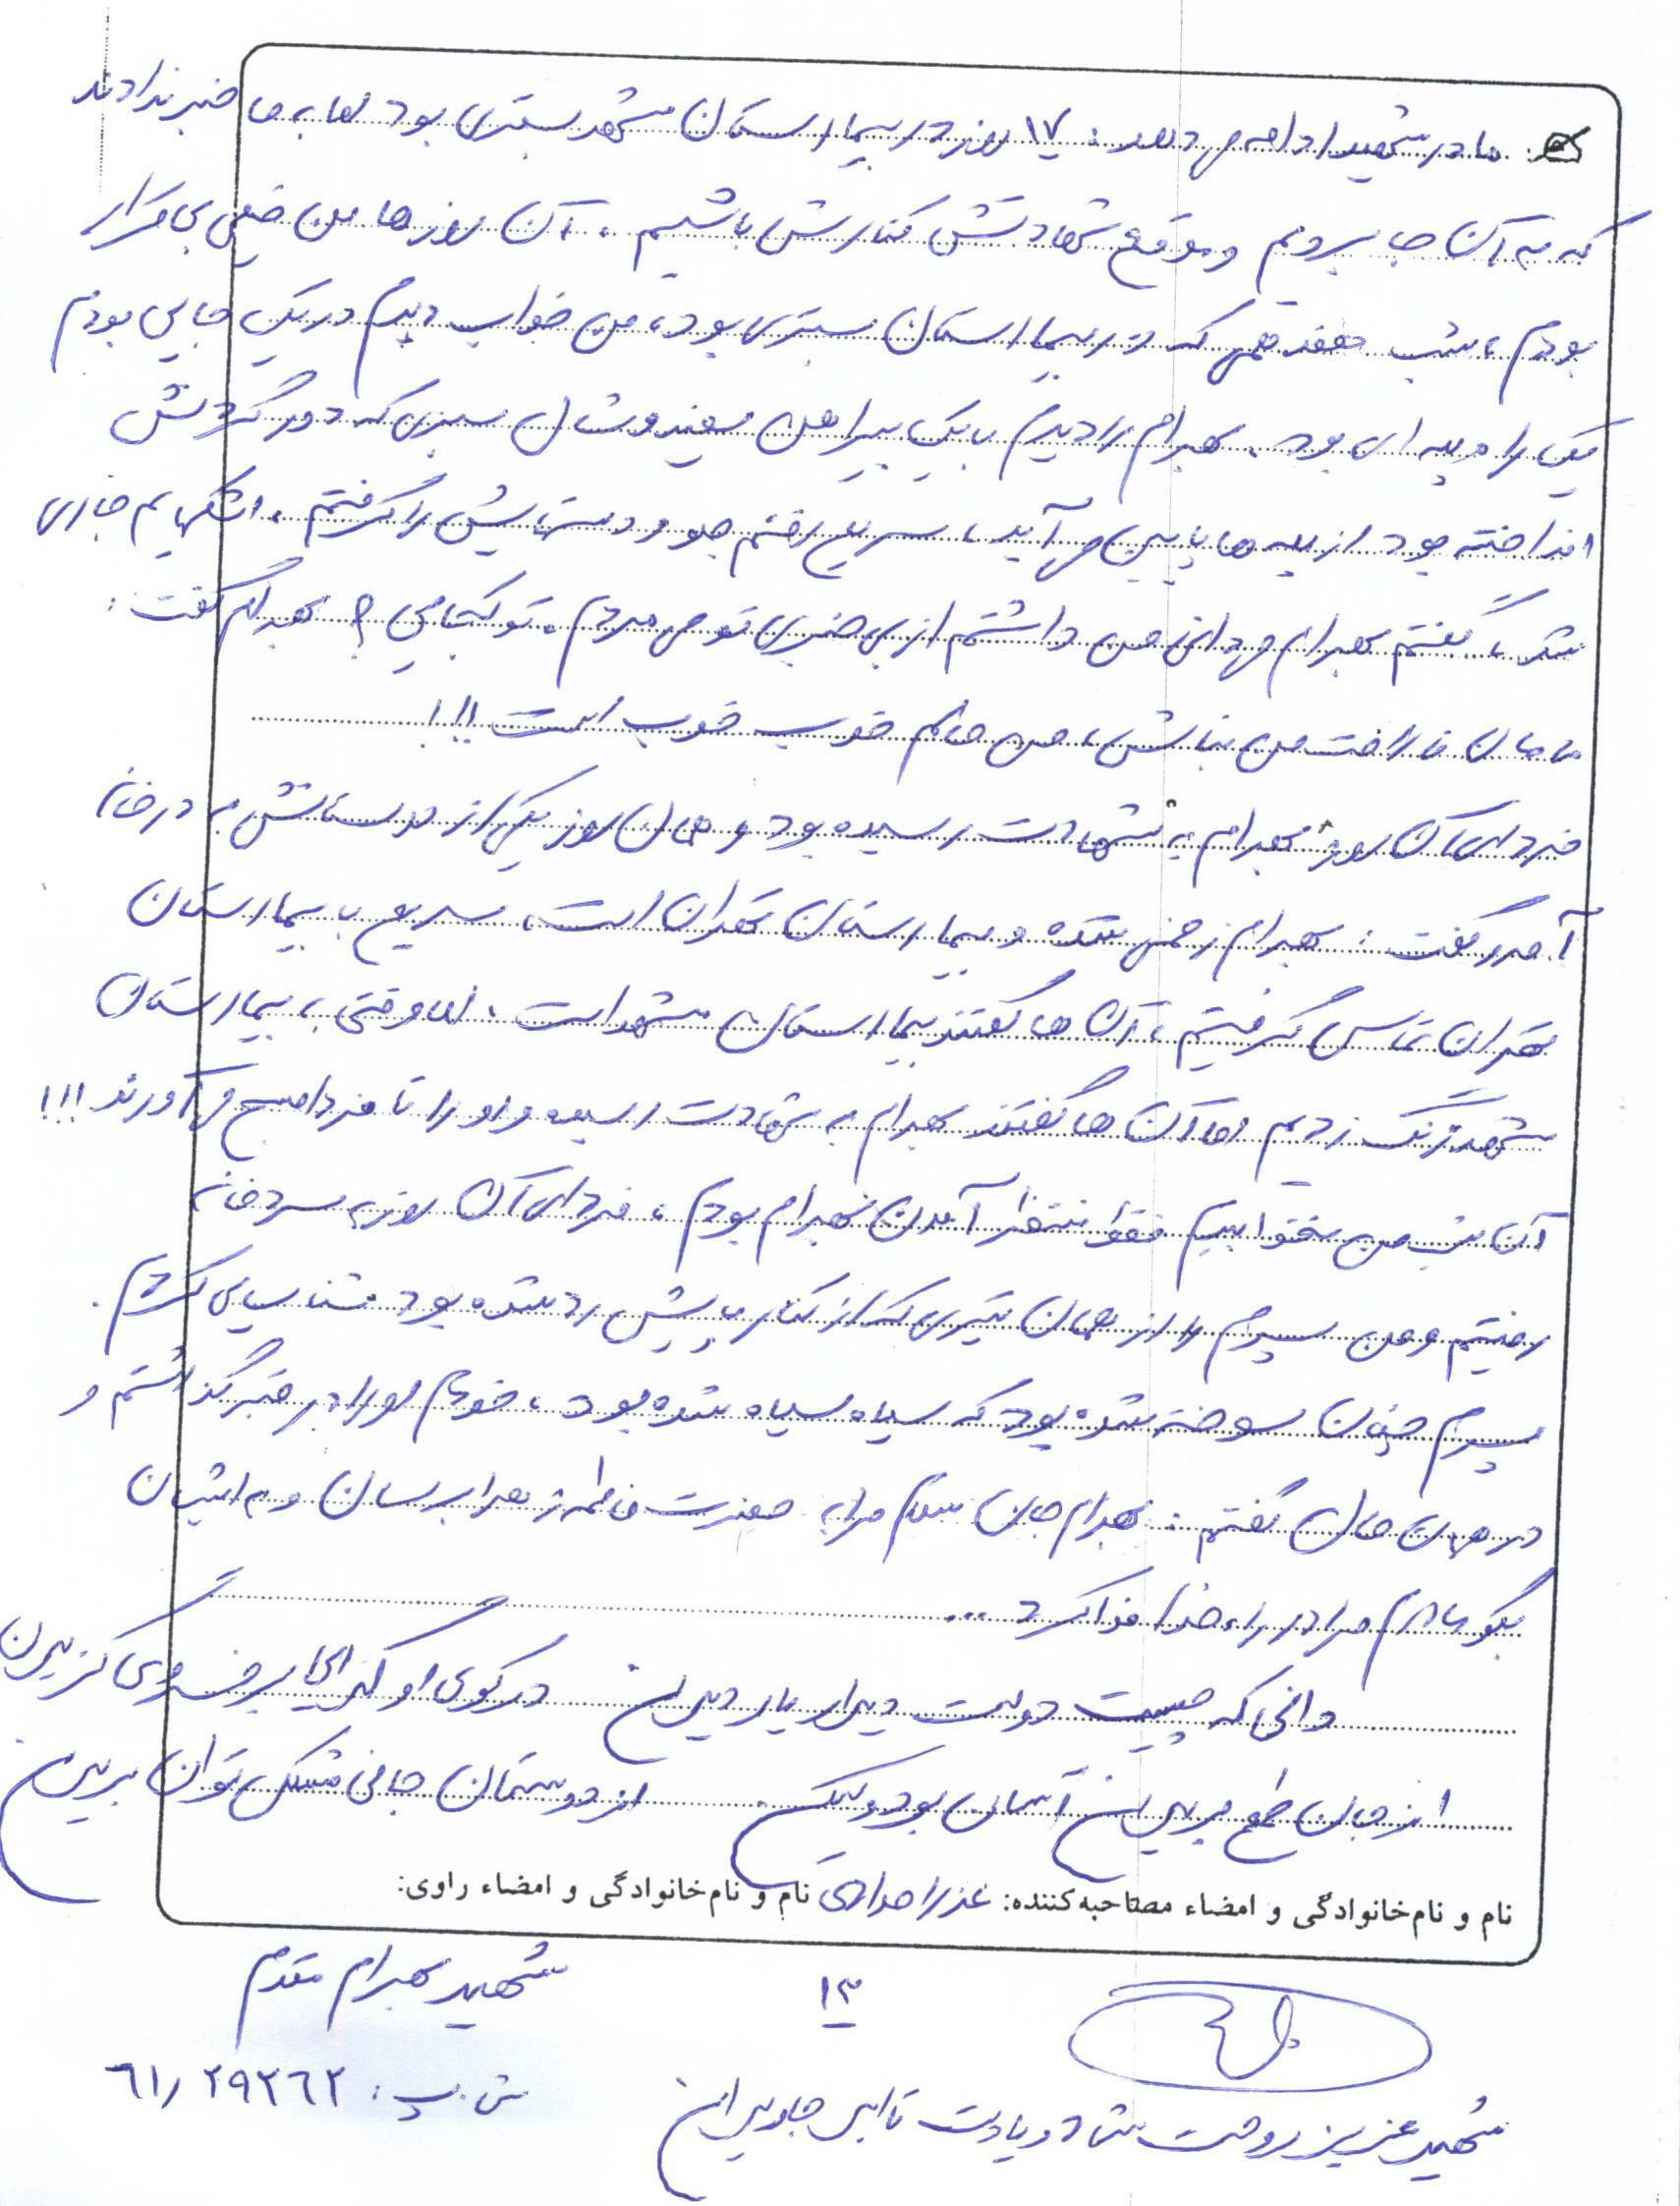 مادر شهید ادامه می‌دهد: ۱۷ روز در بیمارستان مشهد بستری بود اما به ما خبر ندادند
که به آن جا برویم و موقع شهادتش کنارش باشیم. آن روزها من خیلی بی قرار
بودم، شب هفدهمی که در بیمارستان بستری بود، من خواب دیدم در یک جایی بودم
یک راه پله ای بود. بهرام را دیدم با یک پیراهن سفید و شال سبزی که دور گردنش
انداخته بود از پله ها پایین می آید، سریع رفتم جلو و دستهایش را گرفتم، اشکهایم جاری
شد، گفتم بهرام می دانی من داشتم از بی خبری تو می مردم، تو کجایی؟ بهرام گفت:
مامان ناراحت من نباش، من حالم خوب خوب است!!!
فردای آن روز بهرام به شهادت رسیده بود و همان روز یکی از دوستانش به در خانه
آمد و گفت: بهرام زخمی شده و بیمارستان تهران است، سریع با بیمارستان
تهران تماس گرفتیم، آن ها گفتند بیمارستان مشهد است، اما وقتی با بیمارستان
مشهد زنگ زدیم اما آن ها گفتند بهرام به شهادت رسیده و او را تا فردا صبح می آورند!!!
آن شب من نخوابیدم فقط منتظر آمدن بهرام بودم، فردای آن روز به سردخانه
رفتیم و من پسرم را از همان تیری که از کنار پایش رد شده بود شناسایی کردم.
پسرم چنان سوخته شده بود که سیاه سیاه شده بود، خودم او را در قبر گذاشتم و
در همان حال گفتم: بهرام جان سلام مرا به حضرت فاطمه زهرا برسان و به ایشان
بگو مادرم مرا در راه خدا فدا کرد...
دانی که چیست دولت دیدار یار دیدن در کوی او گدایی بر خسروی گزیدن
از جان طمع بریدن آسان بود ولیکن از دوستان جانی مشکل توان بریدن
نام و نام‌خانوادگی و امضاء مصاحبه‌کننده: عذرا مرادی نام و نام‌خانوادگی و امضاء راوی:
شهید بهرام مقدم
۱۳
ش. پ: ۶۱/۲۹۳۶۲
شهید عزیز روحت شاد و یادت تا ابد جاویدان